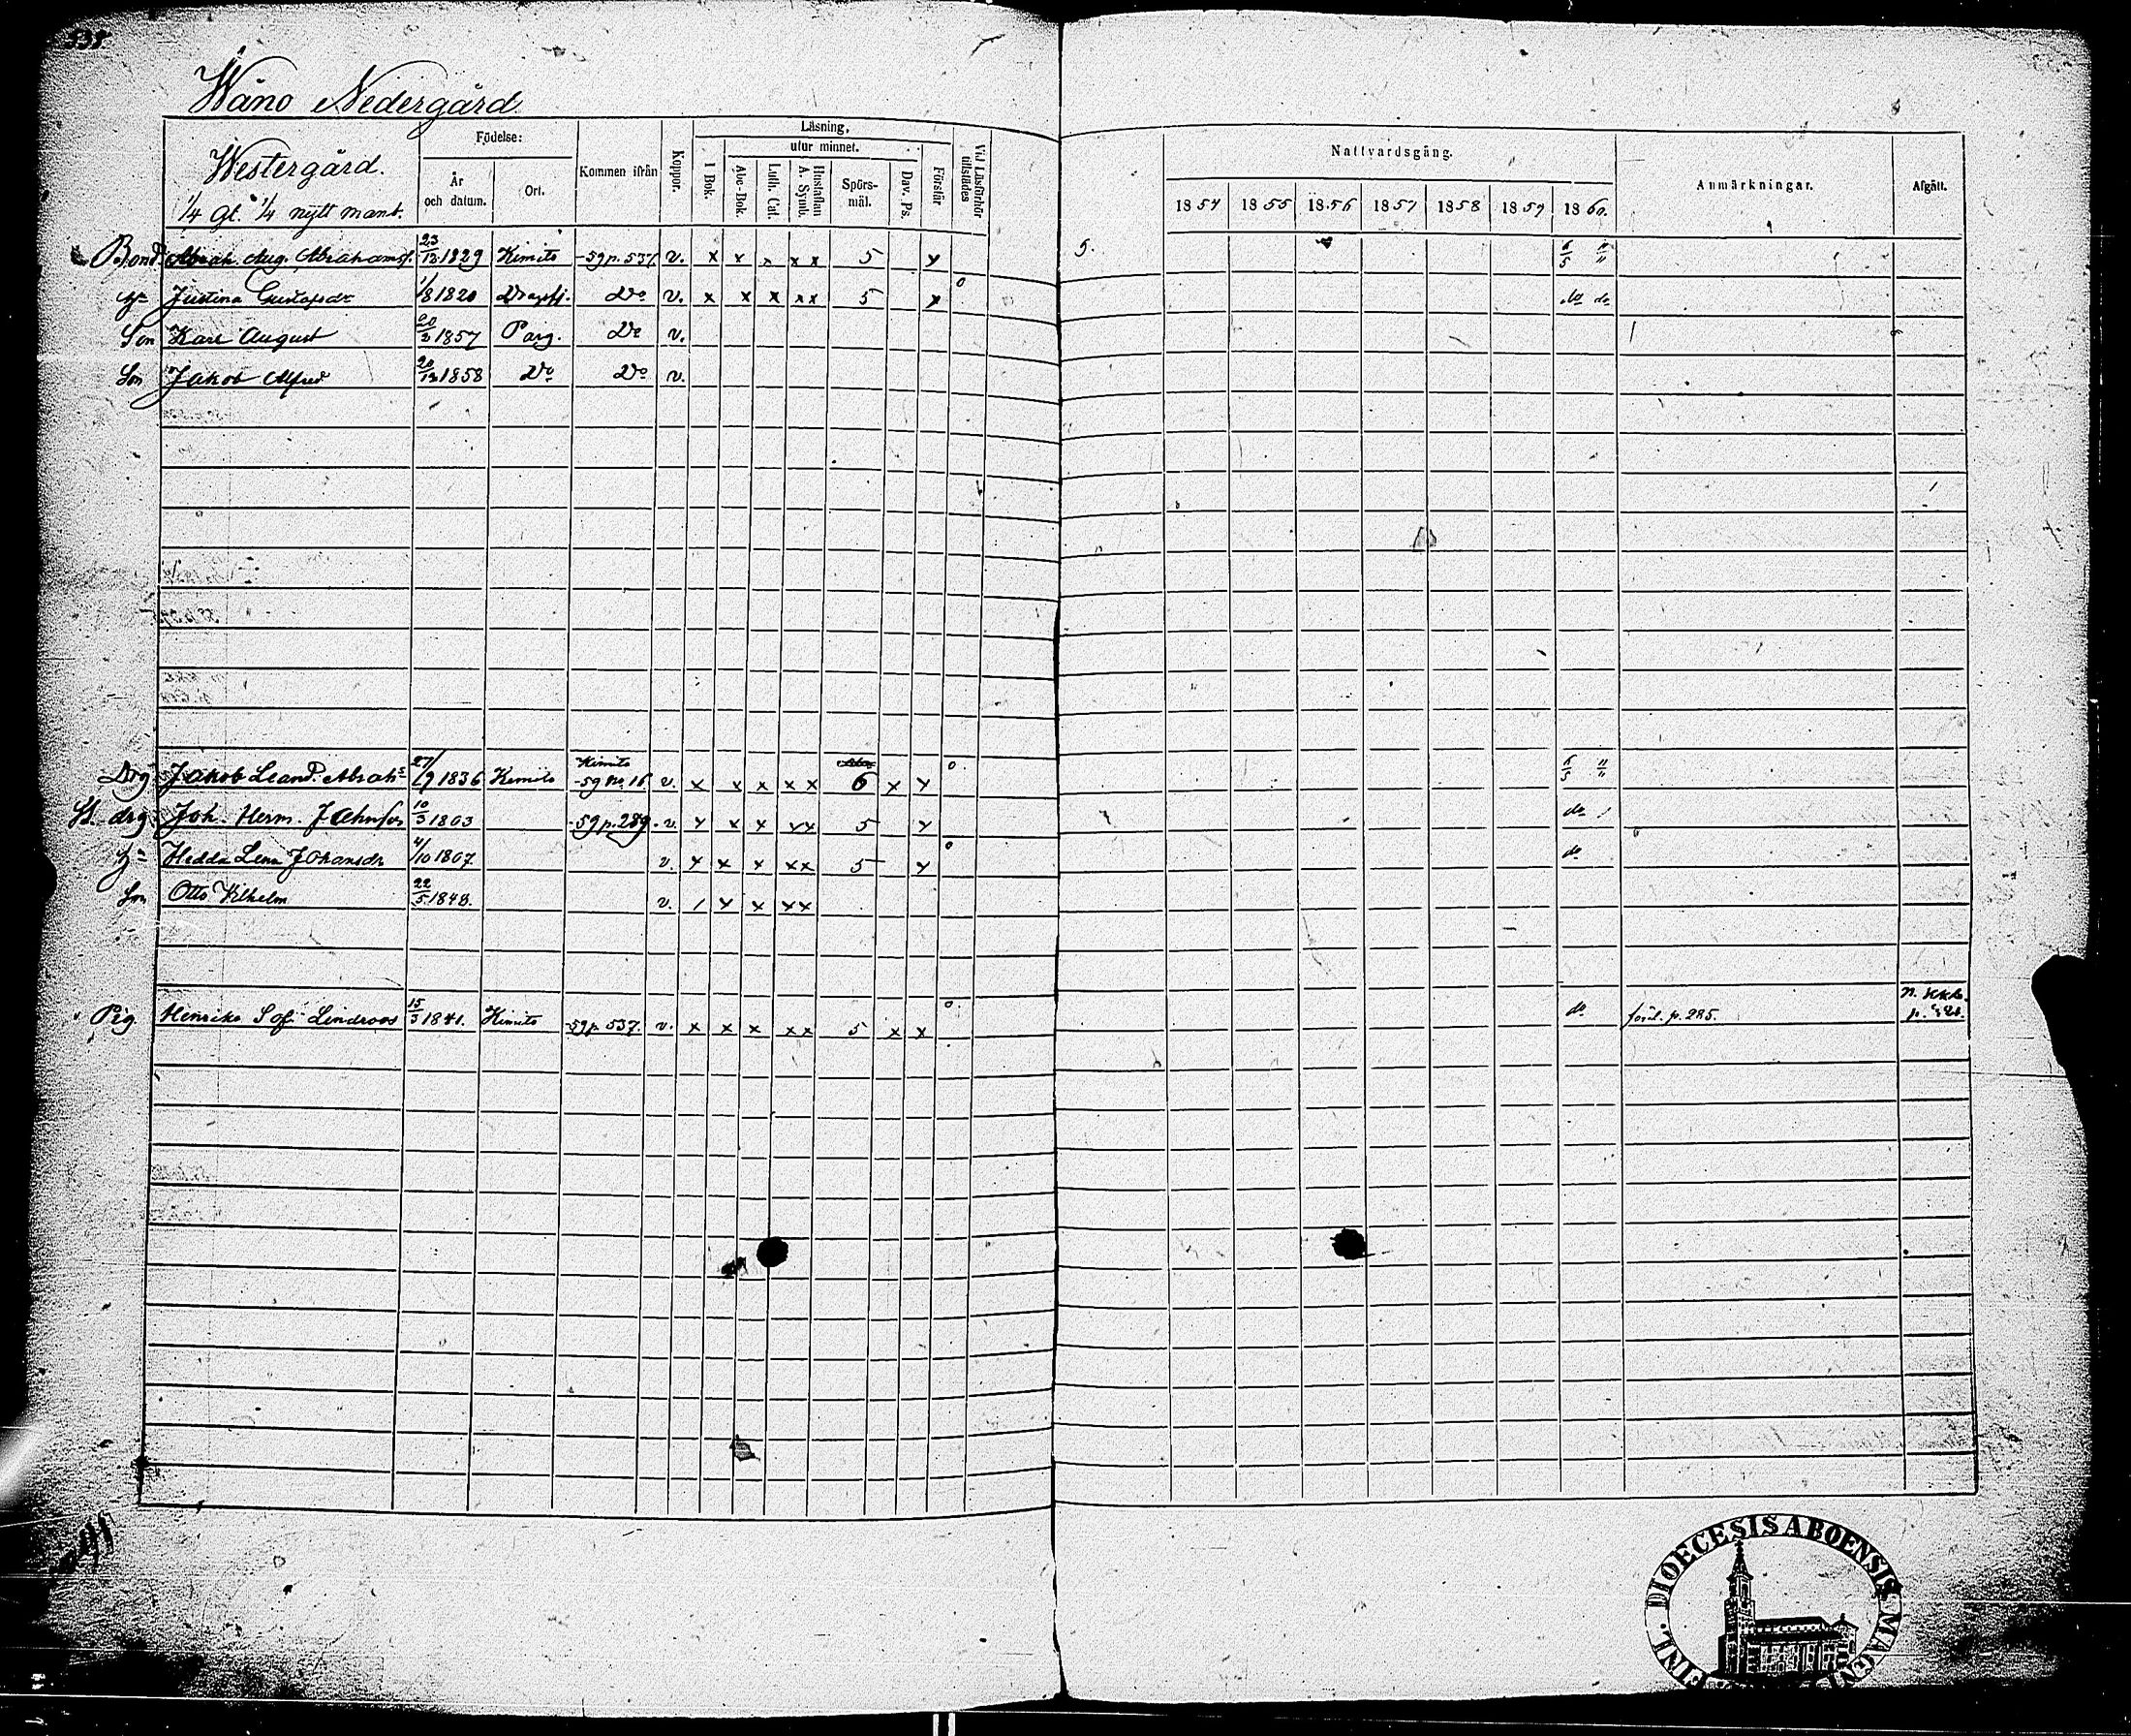 535.
Wäno Nedergård.
Westergård.
1/4 gt. 1/4 nytt mant.
Födelse:
År och datum.
Ort.
Kommen ifrån
Koppor.
Läsning,
I Bok.
utur minnet.
Abc-Bok.
Luth. Cat.
Hustaflan A. Symb.
Spörs-mål.
Dav. Ps.
Förstår
Vid Läsförhör tillstädes
Nattvardsgång.
1854 1855 1856 1857 1858 1859 1860.
Anmärkningar.
Afgått.
Bond. Abrah. Aug. Abrahamss. 23/12 1829 Kimito -59 p. 537 v. x x x x x 5 x 5. 6/5 "/"
h:u Justina Gustafsdr 1/8 1820 Dragsfj. Do v. x x x x x 5 x 0 do do
Son Karl August 20/2 1857 Parg. Do v.
Son Jakob Alfred 20/12 1858 Do Do v.
Drg Jakob Leand. Abrahs 27/9 1836 Kimito Kimito -59 No 16 v. x x x x x 6 x x 0. 6/5 "/"
St. drg Joh. Herm. Johnson 10/3 1803 -59 p. 289. v. x x x x x 5 x do
h:u Hedda Lena Johansdr 4/10 1807. v. x x x x x 5 x 0 do
Son Otto Vilhelm 22/5 1848. v. / x x x x
Pig. Henrika Sof. Lindroos 15/3 1841. Kimito -59 p 537. v. x x x x x 5 x x 0. do förd. p. 285. n. kkb. p.
FINL. DIOECESIS ABOENSIS MAGN